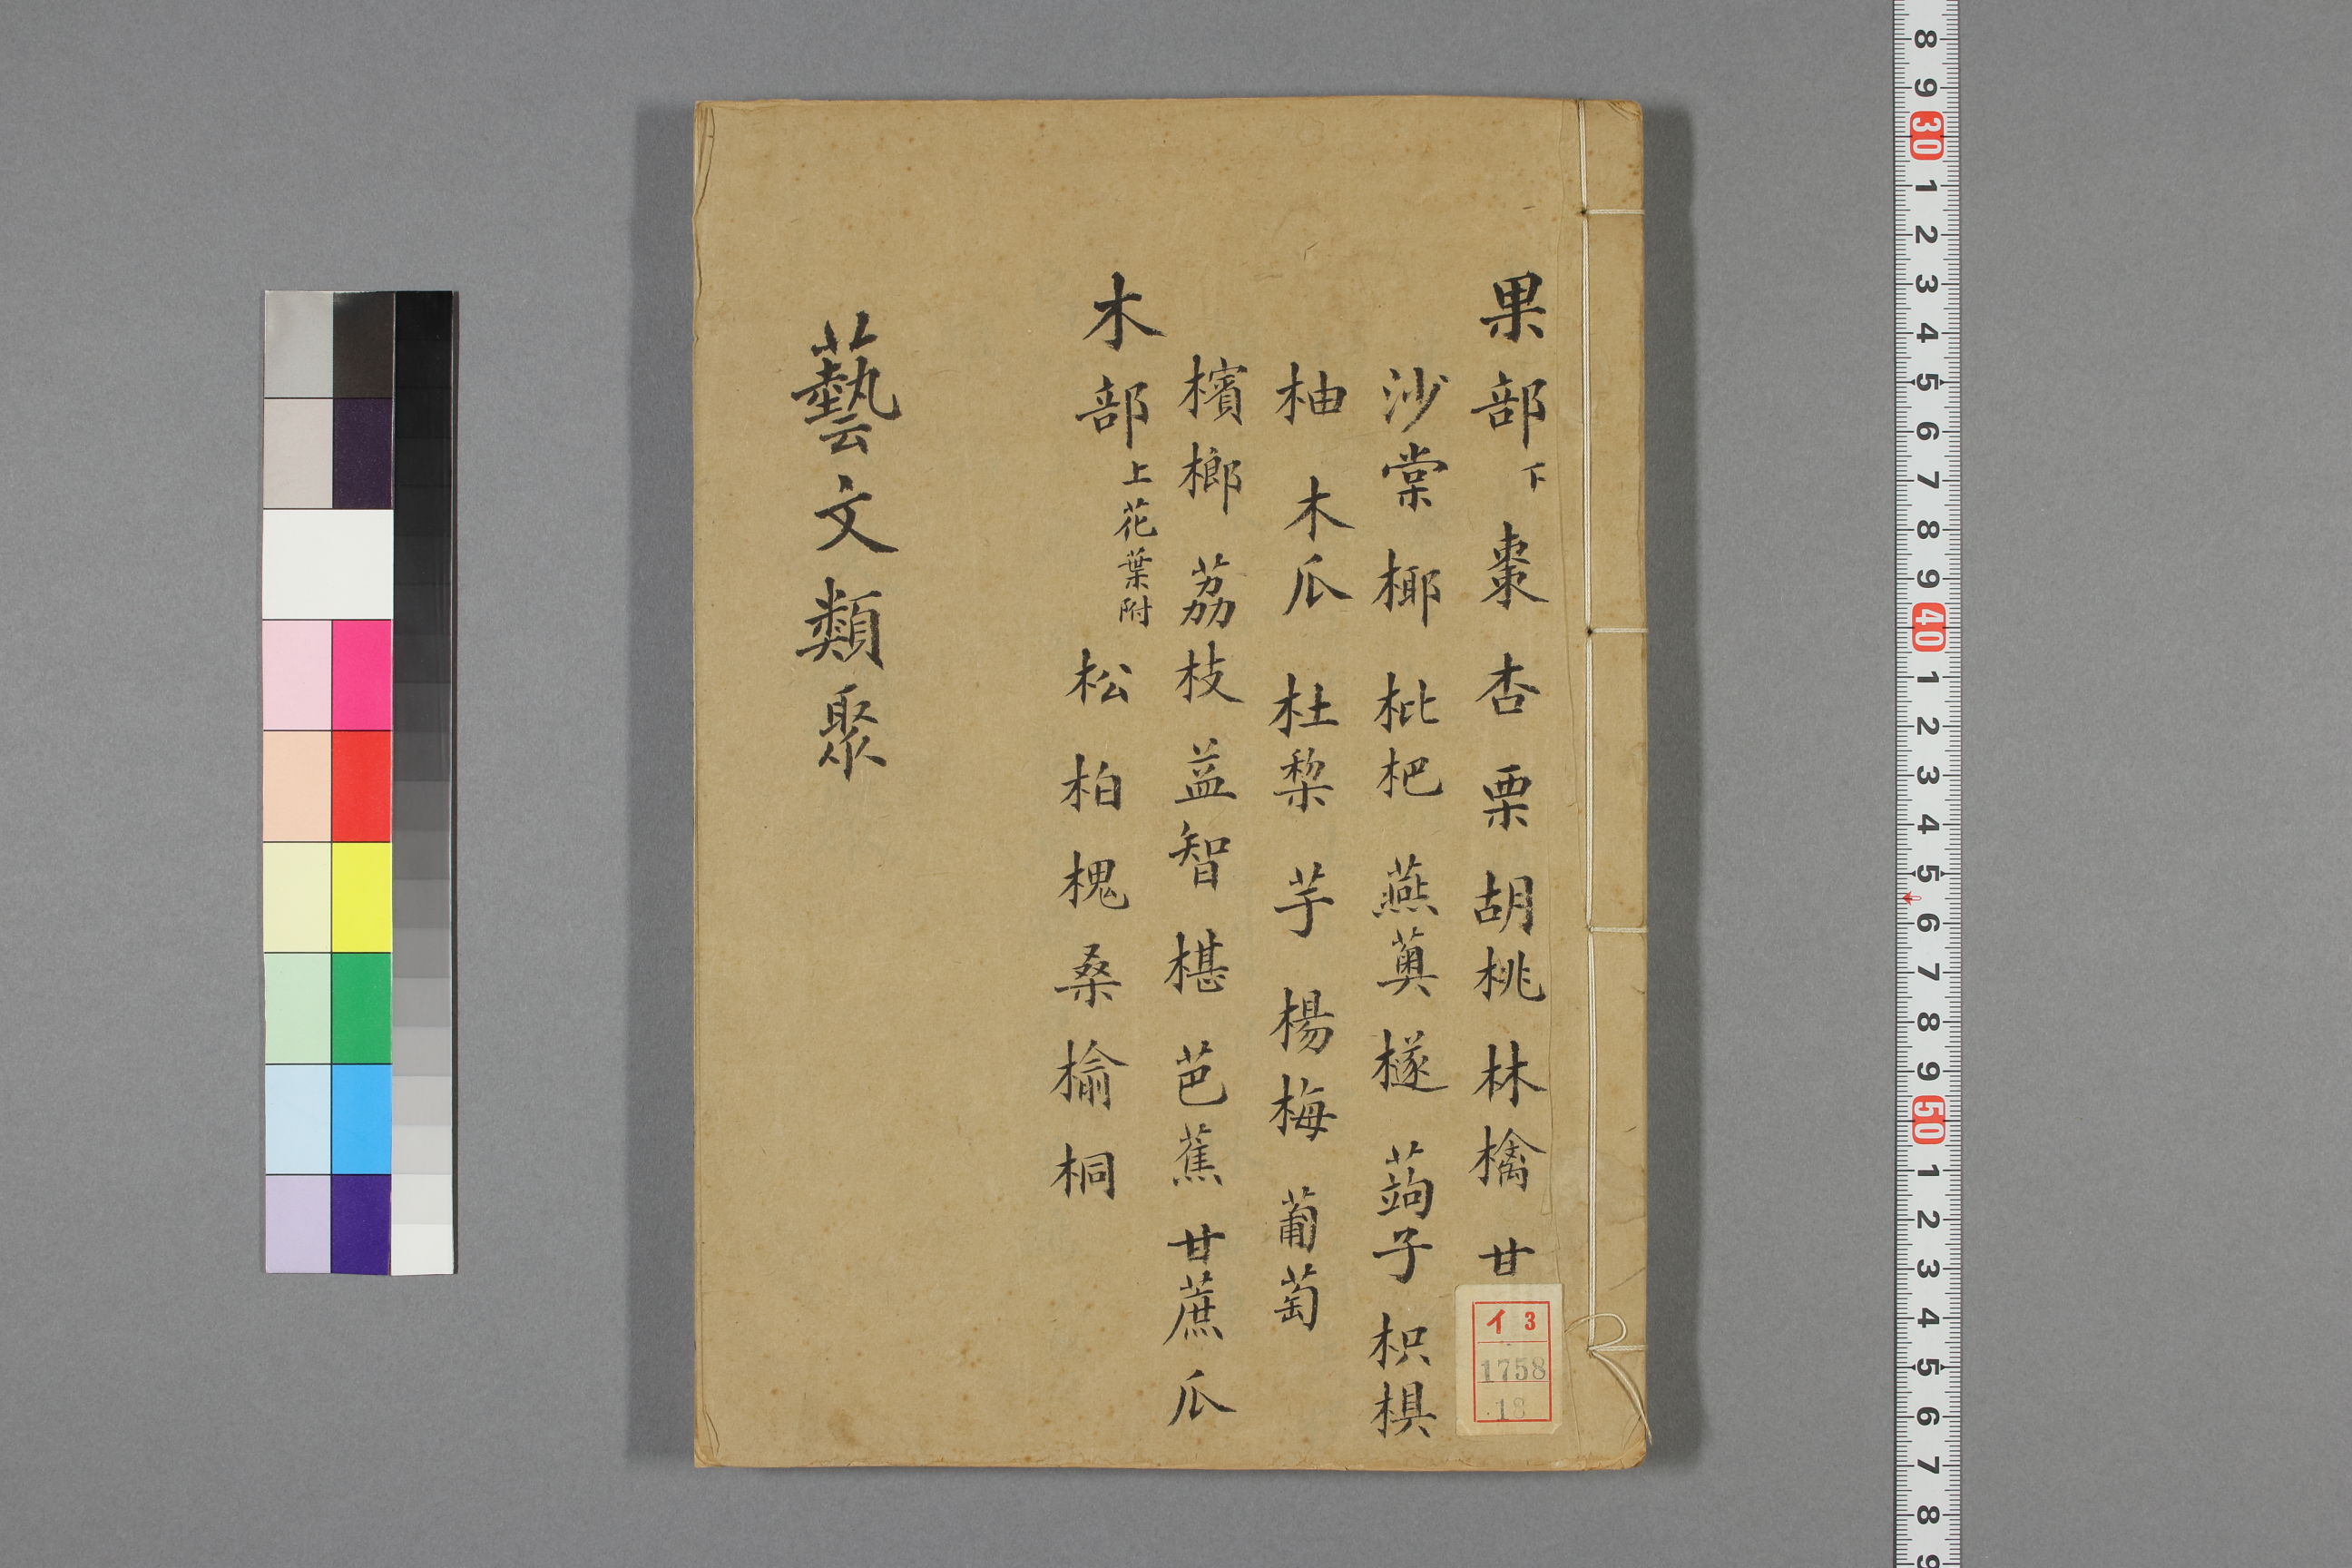 果部下 棗 杏 栗 胡桃 林檎 甘
沙棠 椰 枇杷 燕薁 檖 蒟子 枳椇
柚 木瓜 杜梨 芋 楊梅 葡萄
檳榔 荔枝 益智 椹 芭蕉 甘蔗 瓜
木部上花葉附 松 柏 槐 桑 榆 桐
藝文類聚
イ 3
1758
18
8 9 30 1 2 3 4 5 6 7 8 9 40 1 2 3 4 5 6 7 8 9 50 1 2 3 4 5 6 7 8 9